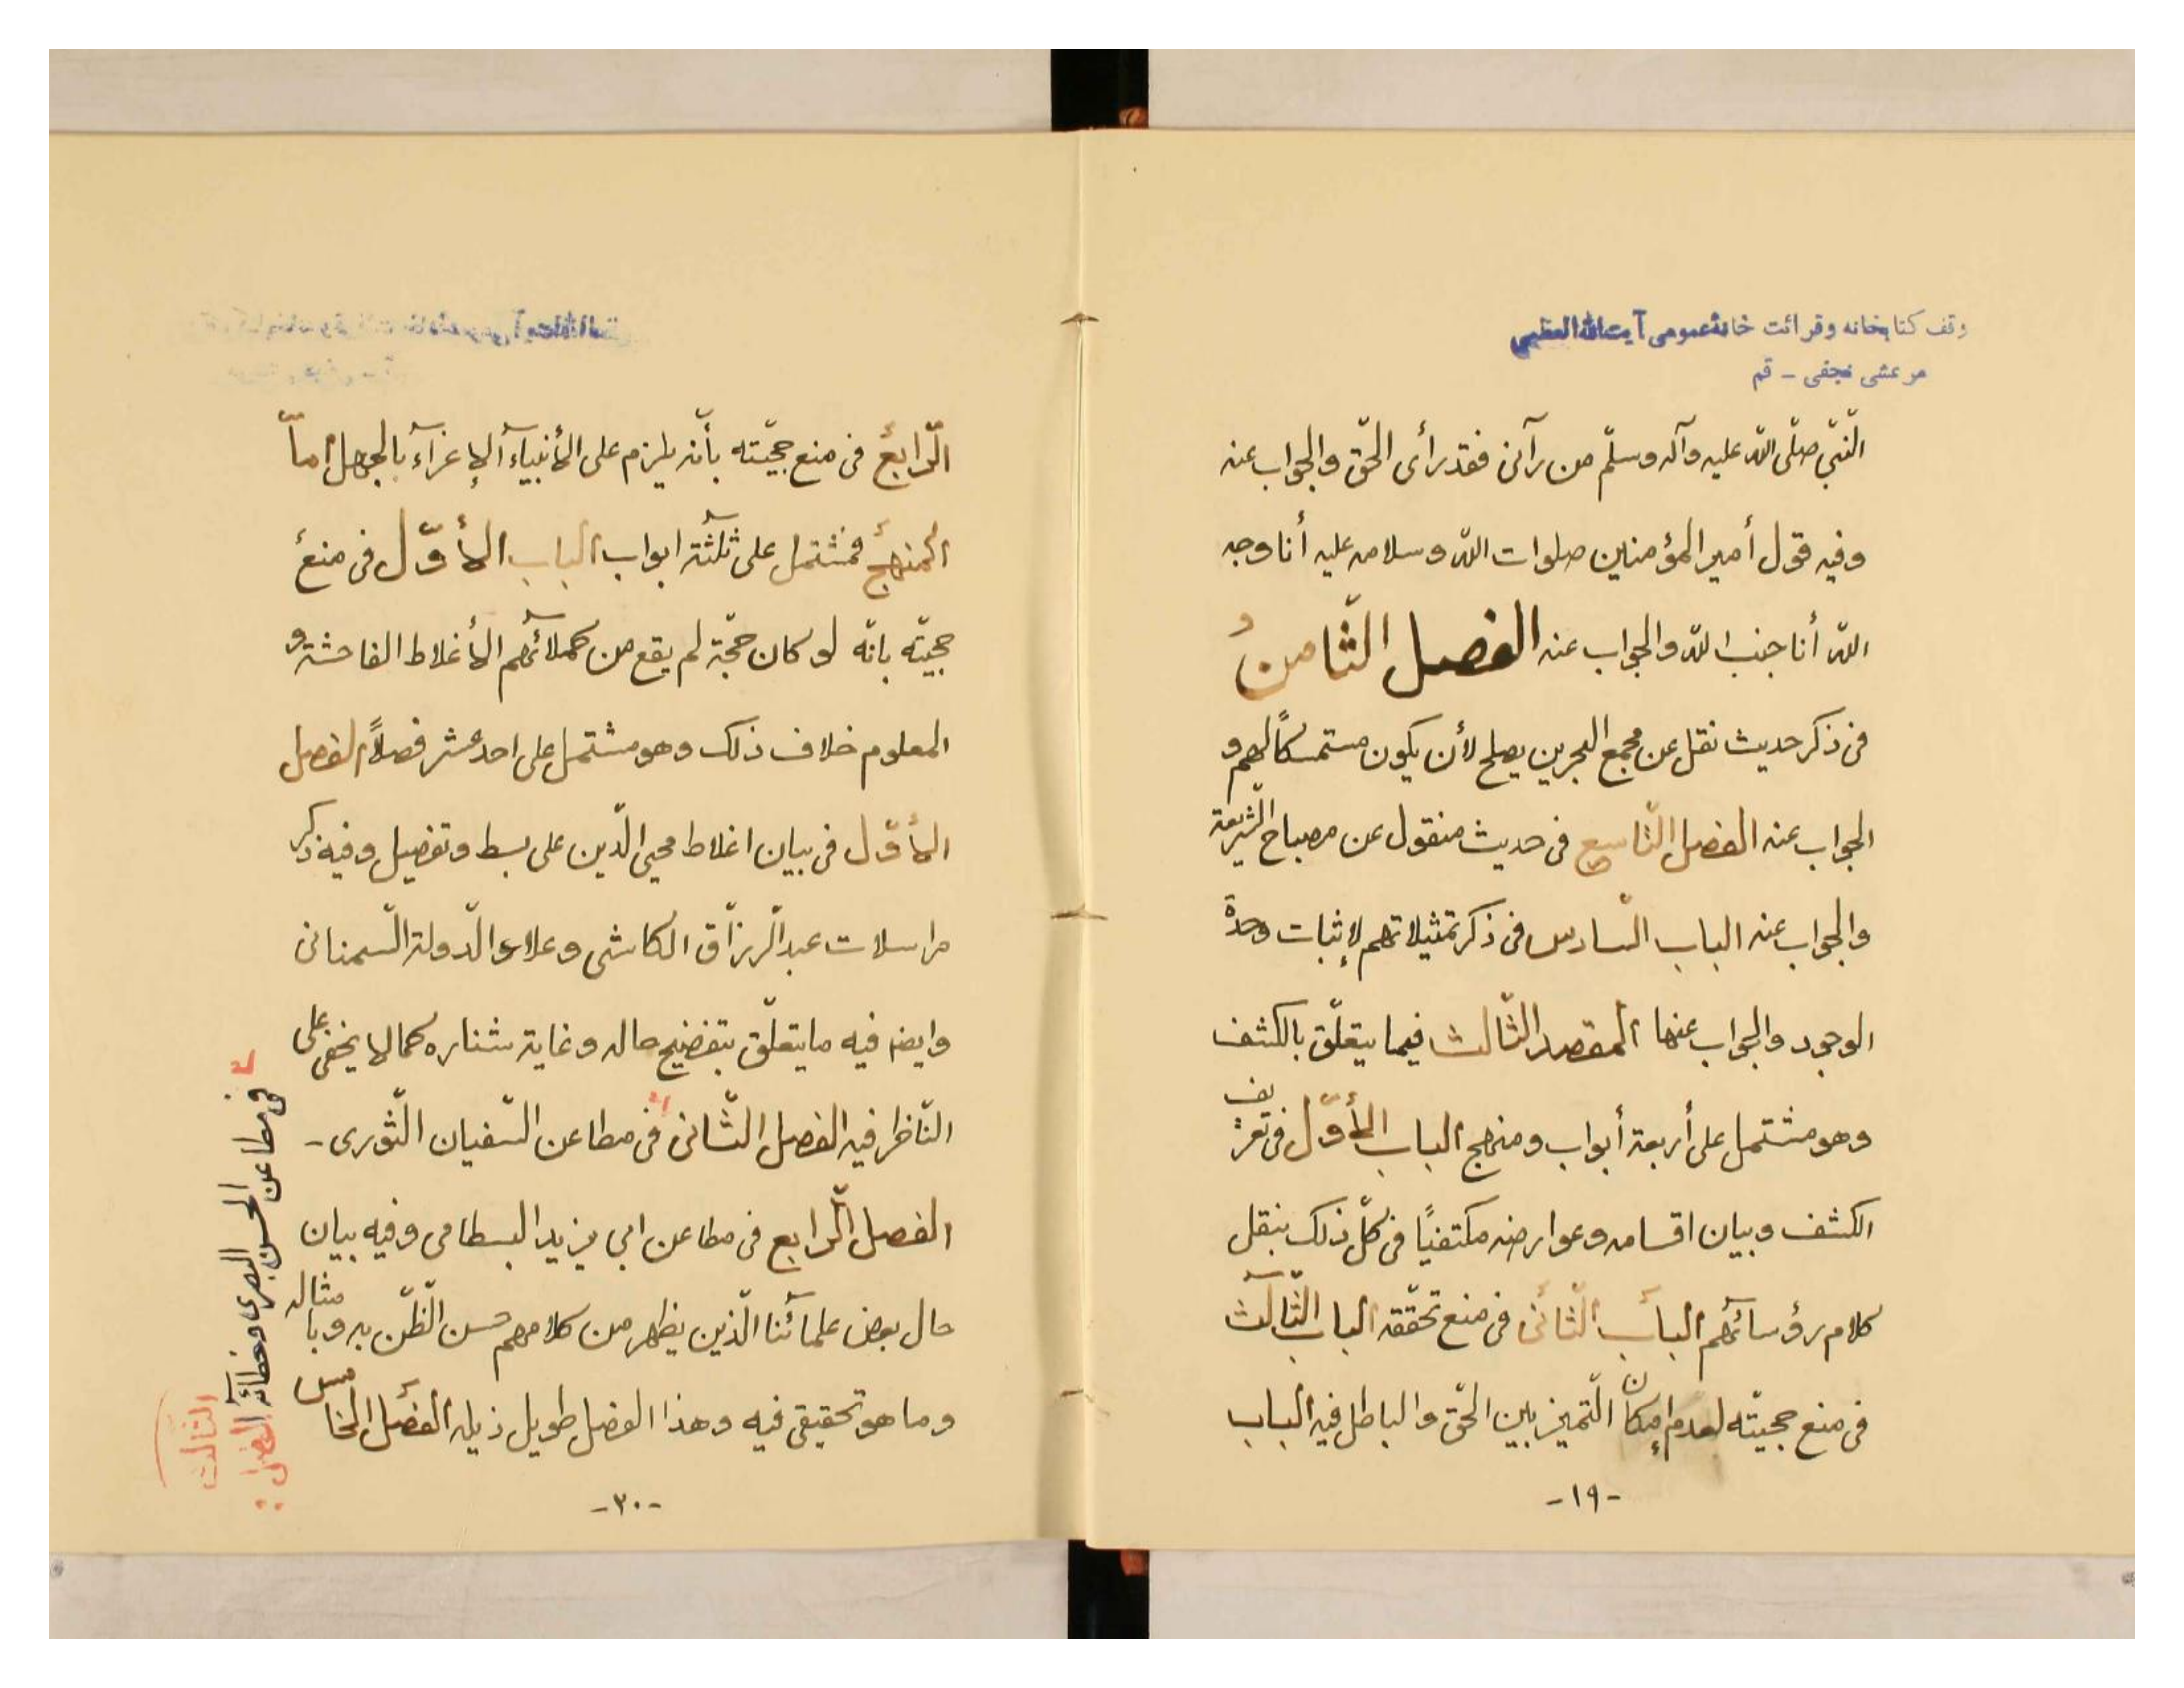 وقف کتابخانه وقرائت خانهٔ عمومی آیت‌الله العظمی
مرعشی نجفی - قم
النّبيّ صلّى الله عليه وآله وسلّم من رآنى فقد رأى الحقّ والجواب عنه
وفيه قول أمير المؤمنين صلوات الله وسلامه عليه أنا وجه
الله أنا جنب الله والجواب عنه الفصل الثّامنُ
فى ذكر حديث نقل عن مجمع البحرين يصلح لأن يكون مستمسكًا لهم و
الجواب عنه الفصل التّاسع فى حديث منقول عن مصباح الشّريعة
والجواب عنه الباب السّادس فى ذكر تمثيلاتهم لإثبات وحدة
الوجود والجواب عنها المقصد الثّالث فيما يتعلّق بالكشف
وهو مشتمل على أربعة أبواب ومنهج الباب الأوّل فى تعريف
الكشف وبيان اقسامه وعوارضه مكتفيًا فى كلّ ذلك بنقل
كلام رؤسآئهم الباب الثّانى فى منع تحقّقه الباب الثّالث
فى منع حجيّته لعدم إمكان التّميز بين الحقّ والباطل فيه الباب
-١٩-
الرّابعُ فى منع حجيّته بأنّه يلزم على الأنبياء الإغرآء بالجهل امّا
المنهجُ فمشتمل على ثلثة ابواب الباب الأوّل فى منع
حجيّته بانّه لو كان حجّة لم يقع من كملائهم الأغلاط الفاحشة و
المعلوم خلاف ذلك وهو مشتمل على احد عشر فصلاً الفصل
الأوّل فى بيان اغلاط محيى الدّين على بسط وتفصيل وفيه ذكر
مراسلات عبد الرّزّاق الكاشى وعلاء الدّولة السّمنانى
وايضا فيه ما يتعلّق بتفضيح حاله وغاية شناره كما لا يخفى على
النّاظر فيه الفصل الثّانى فى مطاعن السّفيان الثّورى -
الفصل الرّابع فى مطاعن ابى يزيد البسطامى وفيه بيان
حال بعض علمائنا الّذين يظهر من كلامهم حسن الظّنّ به وبامثاله
وما هو تحقيقى فيه وهذا الفصل طويل ذيله الفصل الخامس
-٢٠-
الفصل
الثّالث
فى مطاعن الحسن البصرى وخطائه